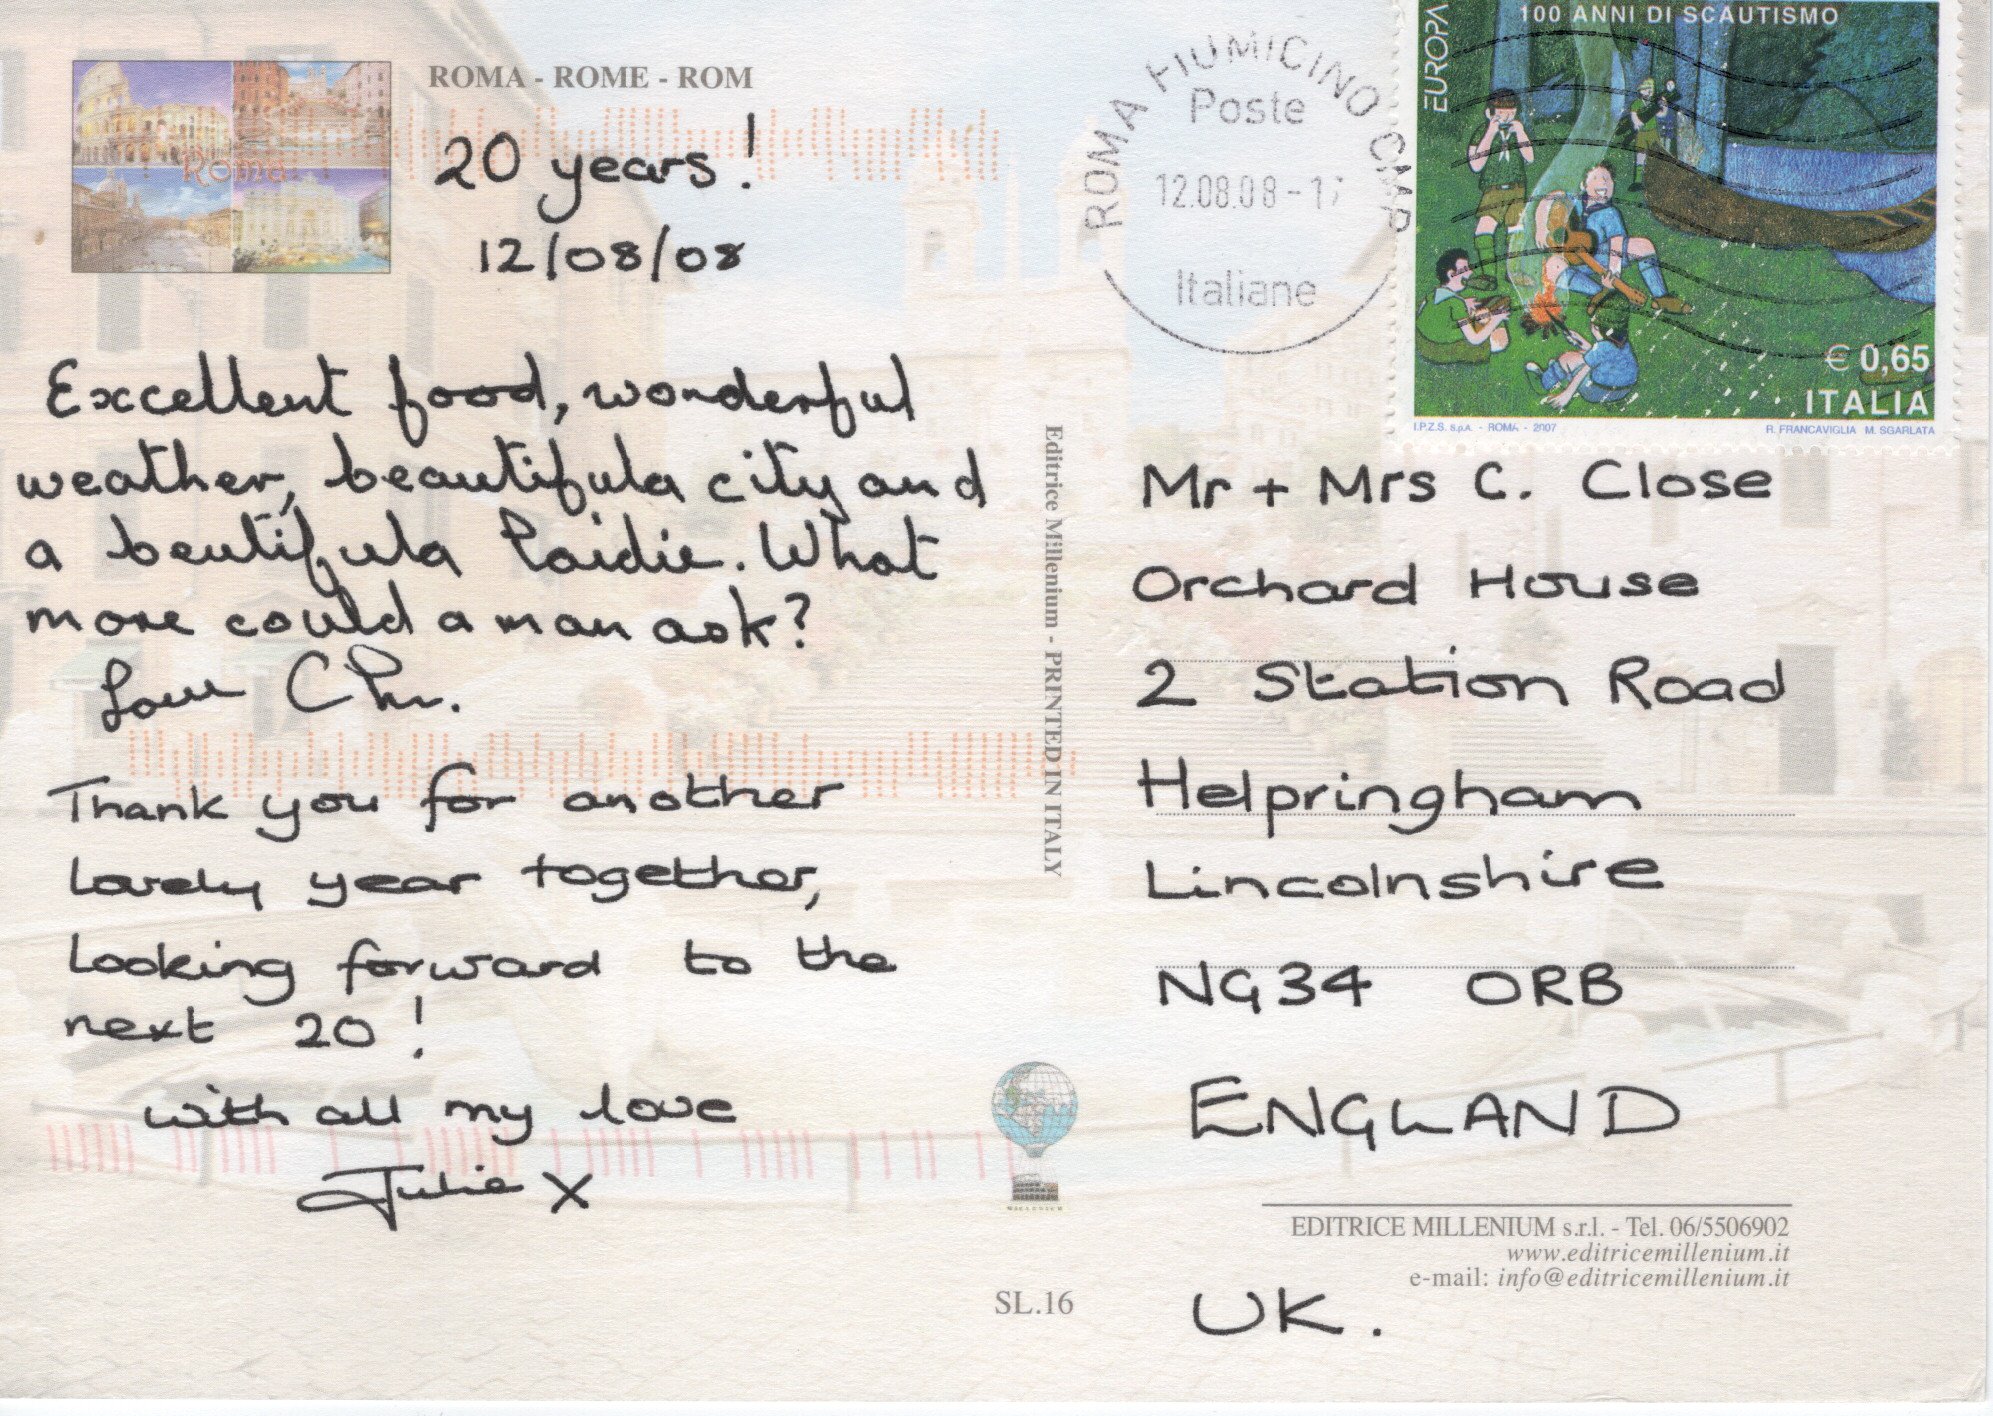 ROMA - ROME - ROM
Roma
20 years!
12/08/08
Excellent food, wonderful
weather, beautifula city and
a beutifula laidie. What
more could a man ask?
Love Chr.
Thank you for another
lovely year together,
looking forward to the
next 20!
with all my love
Julie X
Editrice Millenium - PRINTED IN ITALY
SL.16
ROMA FIUMICINO CMP
Poste
12.08.08-17
Italiane
EUROPA
100 ANNI DI SCAUTISMO
€ 0,65
ITALIA
I.P.Z.S. s.p.A. - ROMA - 2007
R. FRANCAVIGLIA M. SGARLATA
Mr + Mrs C. Close
Orchard House
2 Station Road
Helpringham
Lincolnshire
NG34 0RB
ENGLAND
UK.
EDITRICE MILLENIUM s.r.l. - Tel. 06/5506902
www.editricemillenium.it
e-mail: info@editricemillenium.it